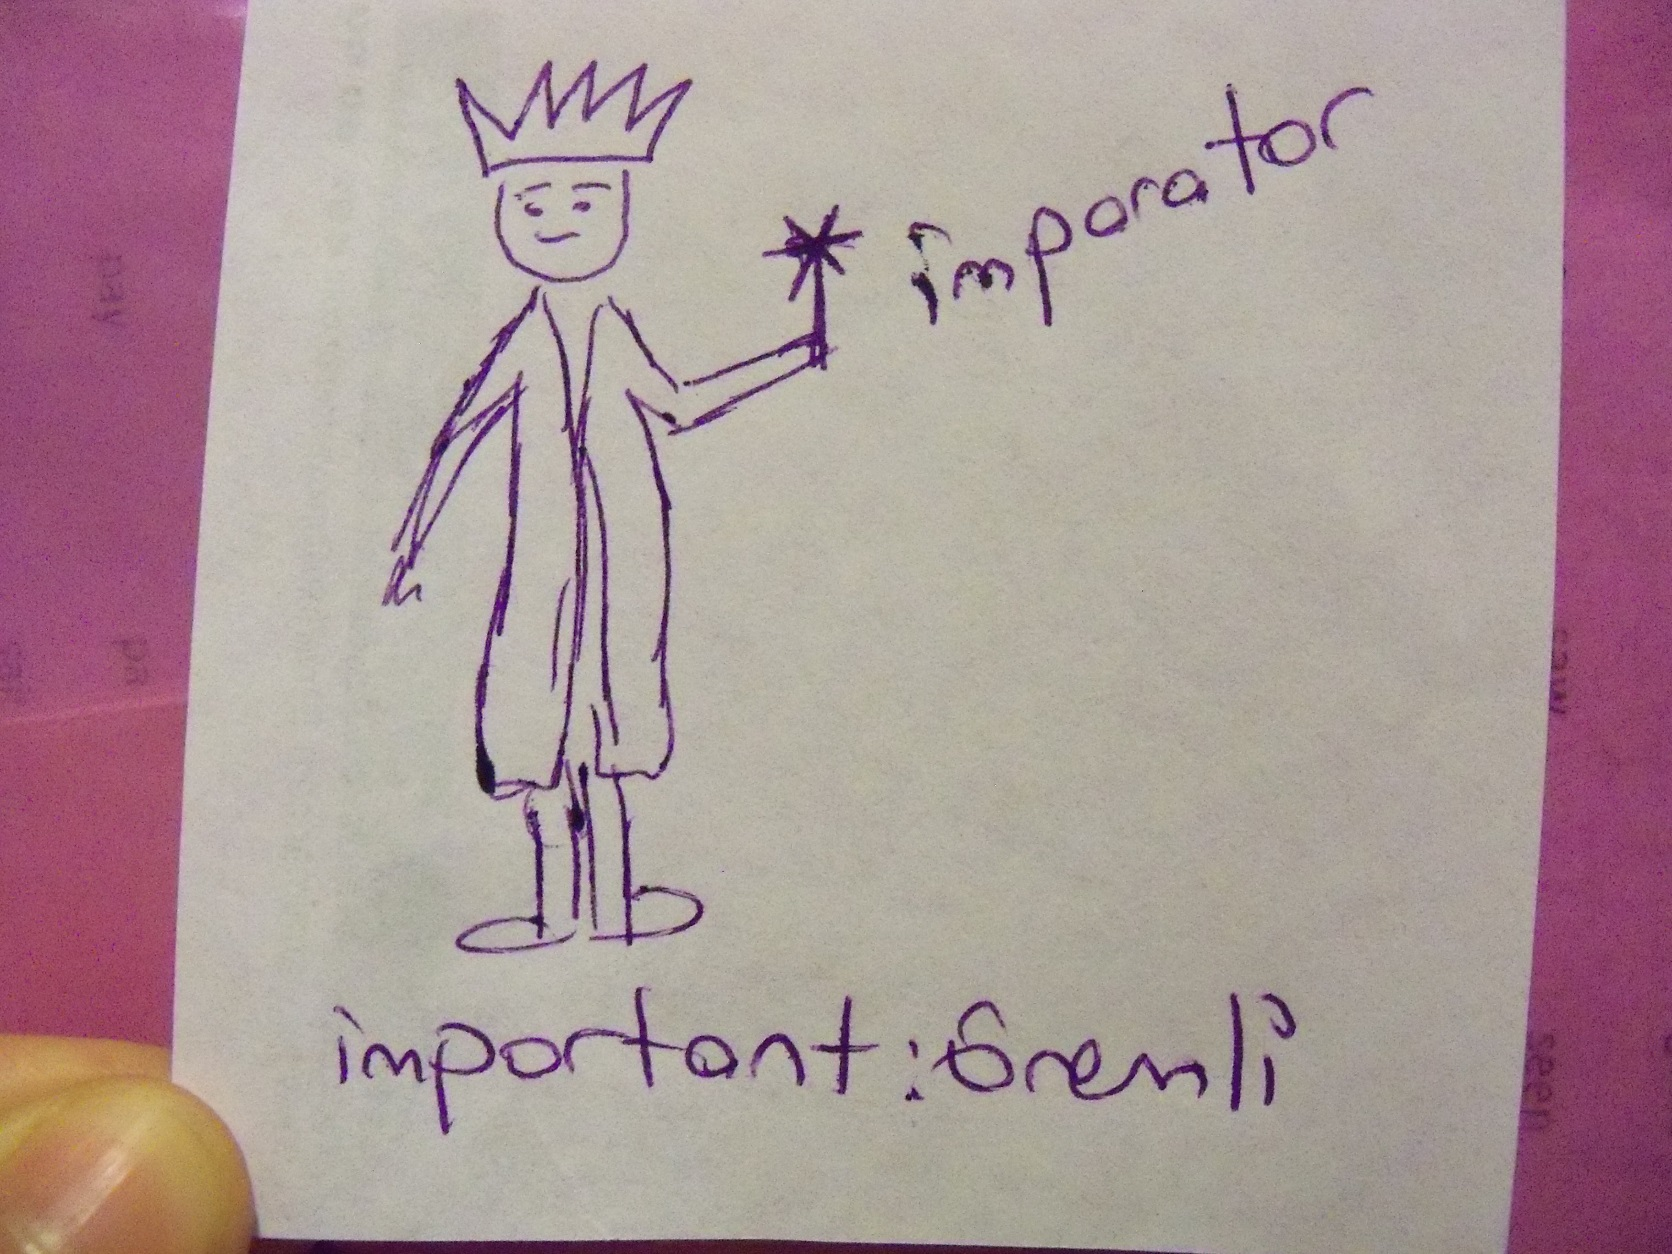 imparator
important:önemli